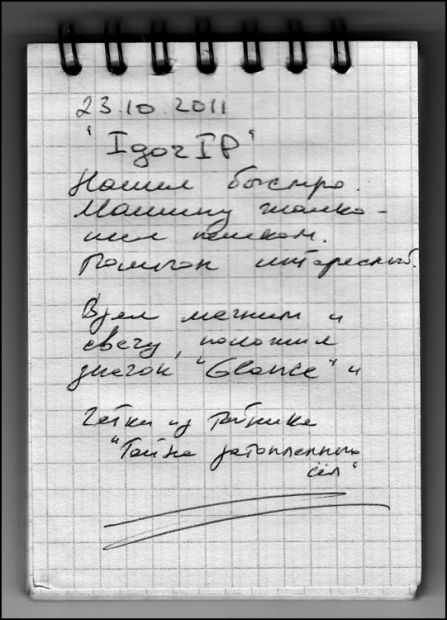 23.10.2011
"IgorIP"
Нашел быстро.
Машину жалко -
шел пешком.
интересный.
Взял магнит и
свечу, положил
значок "Glance" и
Чётки из тайника
"Тайна затопленных
сёл"